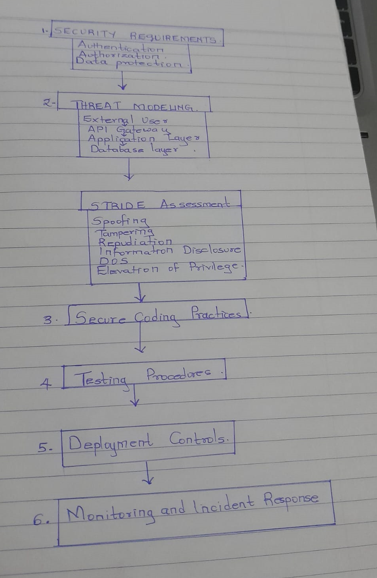 1. SECURITY REQUIREMENTS
Authentication
Authorization
Data protection
2. THREAT MODELING.
External User
API Gateway
Application Layer
Database layer.
STRIDE Assessment
Spoofing
Tampering
Repudiation
Information Disclosure
DOS
Elevation of Privilege.
3. Secure Coding Practices.
4. Testing Procedures.
5. Deployment Controls.
6. Monitoring and Incident Response